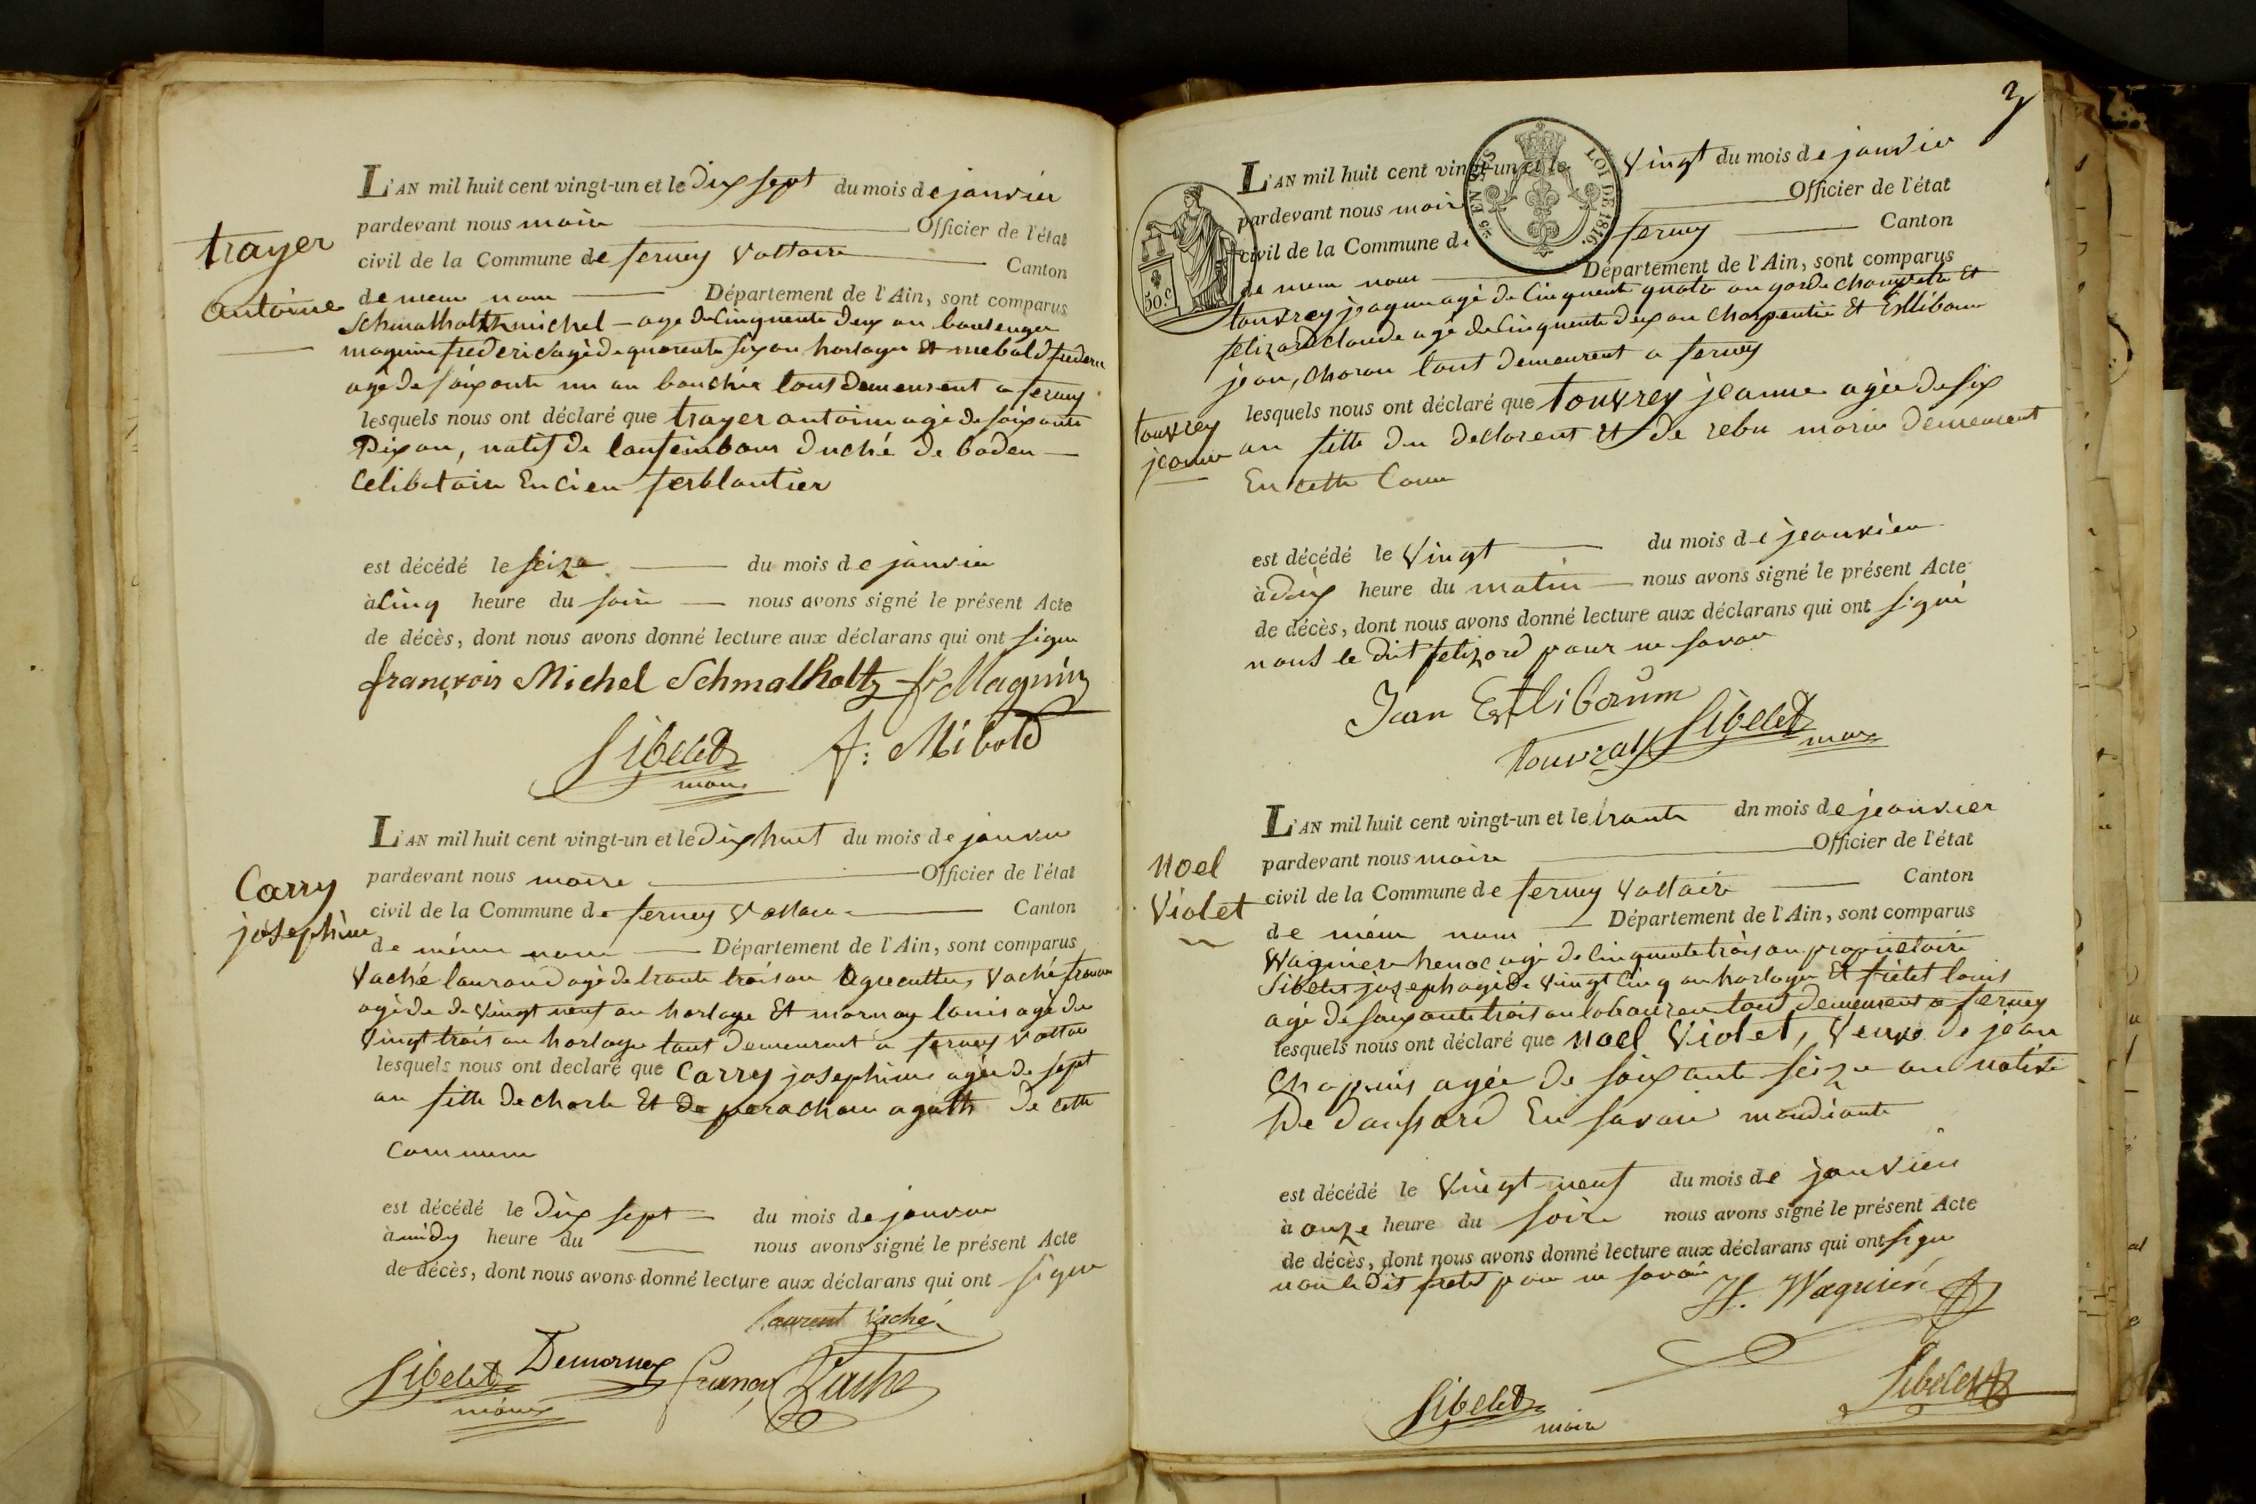 trayer
antoine
L'AN mil huit cent vingt-un et le dix sept du mois de janvier
pardevant nous maire Officier de l'état
civil de la Commune de ferney Voltaire Canton
de meme nom Département de l'Ain, sont comparus
Schmalholtz michel agé de Cinquente deux an boulenger
magnin frederic agé de quarente six an horloger et mebold frederic
agé de soixante un an bouchér tous demeurent a ferney
lesquels nous ont déclaré que trayer antoine agé de soixante
Dix an, natif de duché de baden
Celibataire Encien ferblantier
est décédé le seize du mois de janvier
à Cinq heure du soir nous avons signé le présent Acte
de décès, dont nous avons donné lecture aux déclarans qui ont signe
françois Michel Schmalholtz fr Magnin
Sibelet F: Mibold
maire
Carry
josephine
L'AN mil huit cent vingt-un et le dix huit du mois de janvier
pardevant nous maire Officier de l'état
civil de la Commune de ferney Voltaire Canton
de méme nom Département de l'Ain, sont comparus
Vaché laurand agé de trante trois an agreculteur, Vaché francoi
agé de de Vingt neuf an horloge Et mornay louis agé de
Vingt trois an horloger tout demeurant a ferney Voltaire
lesquels nous ont déclaré que Carry josephine agée de sept
an fille de charle Et de perachon agathe de cette
Commune
est décédé le dix sept du mois de janvier
à midy heure du nous avons signé le présent Acte
de décès, dont nous avons donné lecture aux déclarans qui ont signe
laurent Vaché
Sibelet Demornex francoi Vache
maire
2
L'AN mil huit cent vingt-un et le Vingt du mois de janvier
pardevant nous maire Officier de l'état
civil de la Commune de ferney Canton
de meme nom Département de l'Ain, sont comparus
25 EN SUS LOI DE 1816.
50.c
touvrey jaque agé de Cinquente quatre an garde champetre Et
felizard claude agé de Cinquente deux an Charpentié Et Estlibaum
jean, charon tout demeurent a ferney
touvrey
jeanne
lesquels nous ont déclaré que touvrey jeanne agée de six
an fille du declarent Et de rebu marie demeurent
En cette Comm
est décédé le Vingt du mois de jeanvier
à dix heure du matin nous avons signé le présent Acte
de décès, dont nous avons donné lecture aux déclarans qui ont signé
nous le dit felizard pour ne savoir
Jean Estlibaum
touvray Sibelet
maire
Noel
Violet
L'AN mil huit cent vingt-un et le trante dn mois de jeanvier
pardevant nous maire Officier de l'état
civil de la Commune de ferney Voltaire Canton
de méme nom Département de l'Ain, sont comparus
Wagniere henoc agé de Cinquente trois an propriétaire
Sibelet joseph agé de Vingt Cinq an horloger Et fretet louis
agé de soixante trois an laboureur tous demeurent a ferney
lesquels nous ont déclaré que Noel Violet, Veuve de jean
Chapuis agée de soixante seize an native
De En savoie mandiante
est décédé le Vingt neuf du mois de janvier
à onze heure du soire nous avons signé le présent Acte
de décès, dont nous avons donné lecture aux déclarans qui ont signe
non le dit fretet pour ne savoir
H. Wagnière
Sibelet
Sibelet
maire